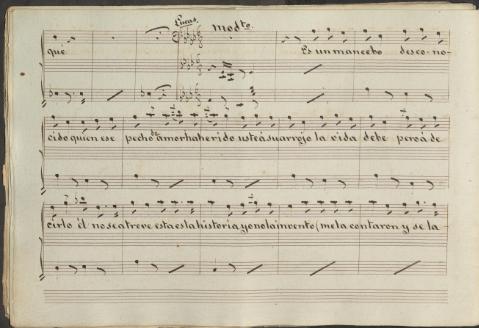 Lucas. modto.
que Es un mancebo desco-no-
cido quien ese pecho de amor ha herido usted su arrojo la vida debe pero á de
cirlo él no se atreve esta es la historia yo no la invento (me la contaron y se la